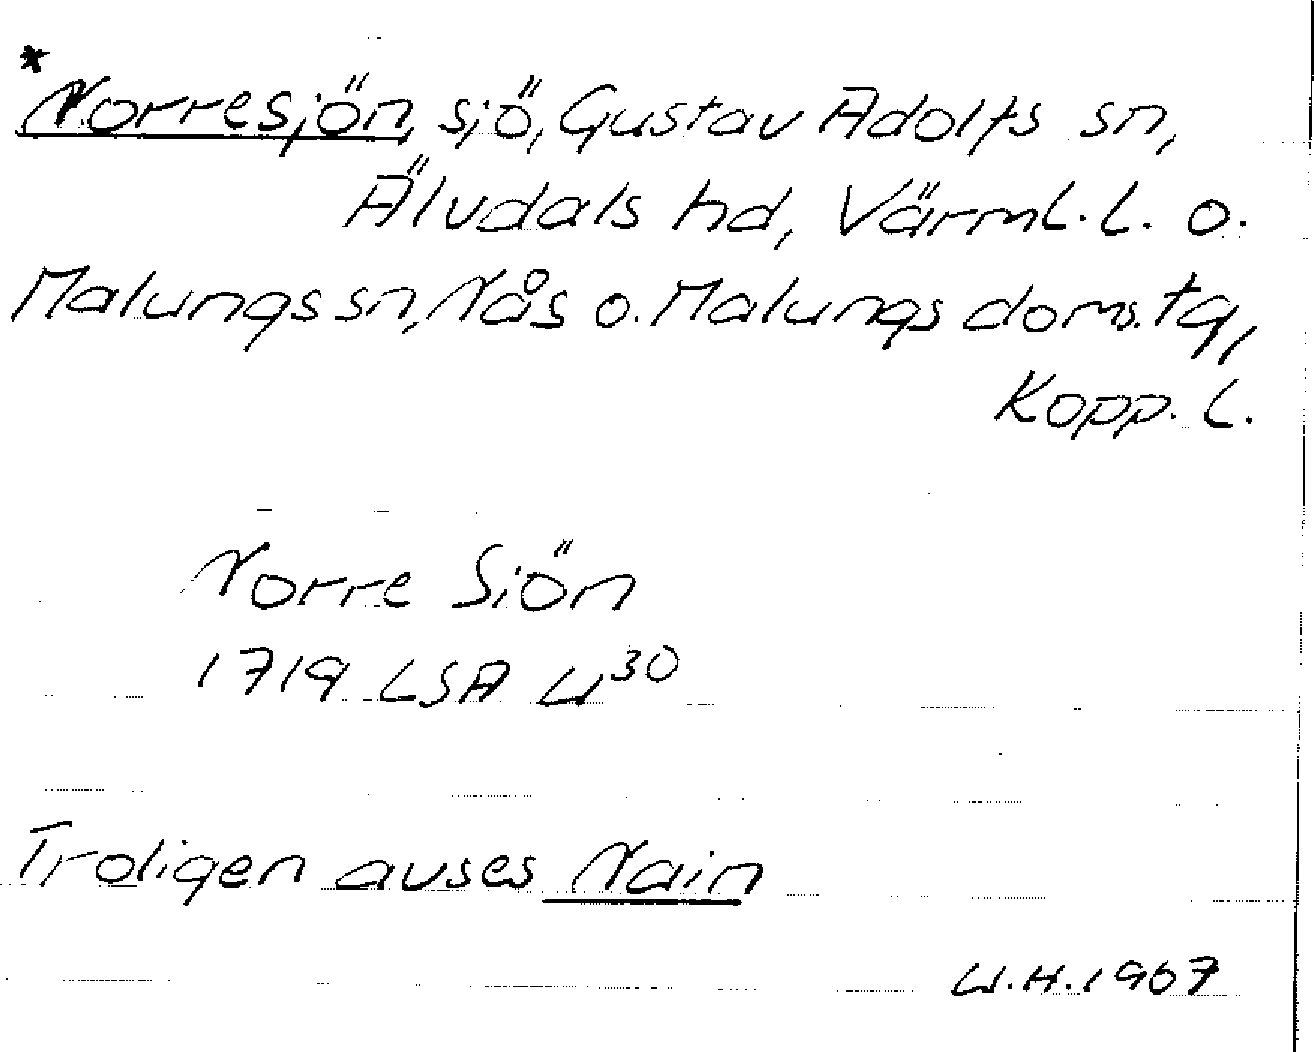 *
Norresjön, sjö, Gustav Adolfs sn,
Älvdals hd, Värml. l. o.
Malungs sn, Nås o. Malungs doms. tg,
Kopp. l.
Norre Siön
1719 LSA W30
Troligen avses Nain
W.H. 1967